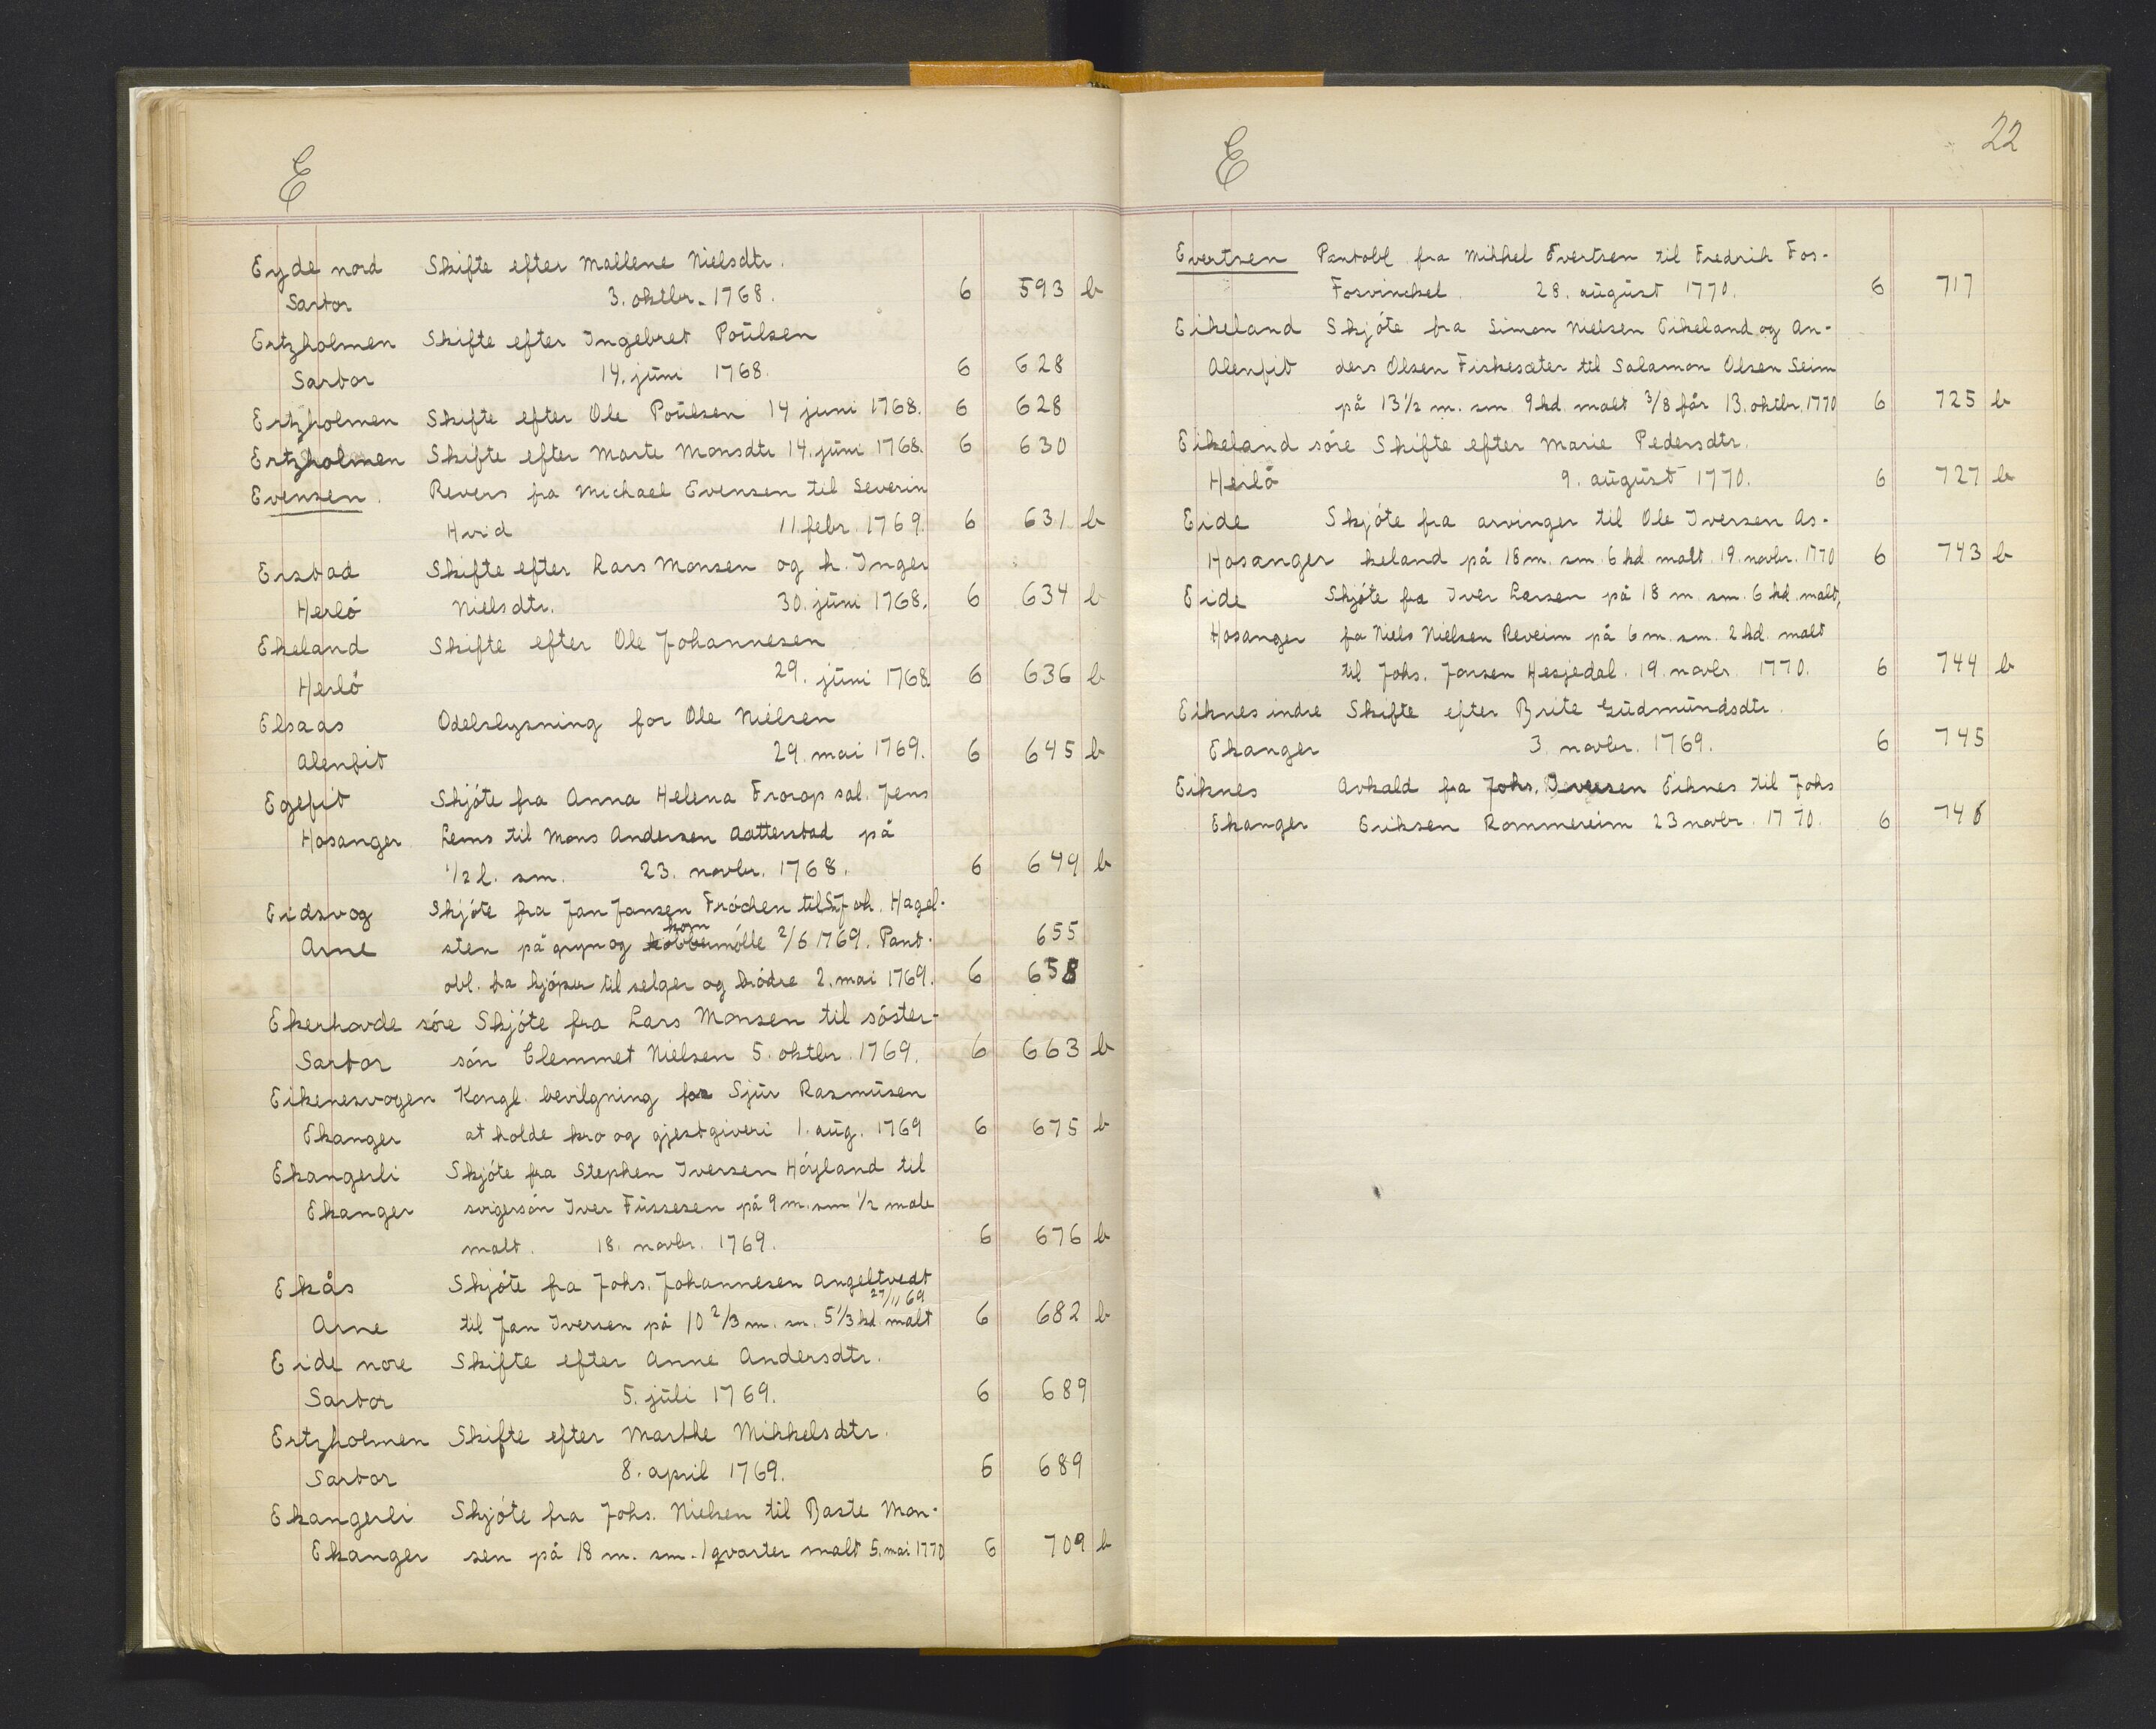 E
Eyde nord Skifte efter Mallene Nielsdtr.
Sartor 3. oktbr. 1768. 6 593 b
Ertzholmen Skifte efter Ingebret Poülsen
Sartor 14. jüni 1768. 6 628
Ertzholmen Skifte efter Ole Poülsen 14 juni 1768. 6 628
Ertzholmen Skifte efter Marte Monsdtr 14. jüni 1768. 6 630
Evensen. Revers fra Michael Evensen til Severin
Hvid 11. febr. 1769. 6 631 b
Erstad Skifte efter Lars Monsen og h. Inger
Herlö Nielsdtr. 30. jüni 1768. 6 634 b
Ekeland Skifte efter Ole Johannesen
Herlö 29. jüni 1768 6 636 b
Elsaas Odelslysning for Ole Nielsen
Alenfit 29. mai 1769. 6 645 b
Egefit Skjöte fra Anna Helena Frorop sal. Jens
Hosanger Lems til Mons Andersen Aatterstad på
1/2 l. sm. 23. novbr. 1768. 6 649 b
Eidsvog Skjöte fra Jan Jansen Fröchen til Joh. Hagel-
korn
Arne sten på gryn og kobbermölle 2/6 1769. Pant- 655
obl. fra kjöper til selger og brödre 2. mai 1769. 6 658
Ekerhovde söre Skjöte fra Lars Monsen til söster-
Sartor sön Clemmet Nielsen 5. oktbr. 1769. 6 663 b
Eikenesvogen Kongl. bevilgning for Sjür Rasmüsen
Ekanger at holde kro og gjestgiveri 1. aüg. 1769 6 675 b
Ekangerli Skjöte fra Stephen Iversen Höyland til
Ekanger svigersön Iver Füssesen på 9 m. sm 1/2 male
malt. 18. novbr. 1769. 6 676 b
Ekås Skjöte fra Johs. Johannesen Angeltvedt
27/11 69
Arne til Jan Iversen på 10 2/3 m. sm. 5 1/3 kd. malt 6 682 b
Eide nore Skifte efter Anne Andersdtr.
Sartor 5. jüli 1769. 6 689
Ertzholmen Skifte efter Marthe Mikkelsdtr.
Sartor 8. april 1769. 6 689
Ekangerli Skjöte fra Johs. Nielsen til Baste Mon-
Ekanger sen på 18 m. sm. 1 qvarter malt 5. mai 1770 6 709 b
E 22
Evertsen Pantobl. fra Mikkel Evertsen til Fredrik Fos-
Fosvinckel. 28. aügüst 1770. 6 717
Eikeland Skjöte fra Simon Nielsen Eikeland og An-
Alenfit ders Olsen Fiskesæter til Salamon Olsen Seim
på 13 1/2 m. sm. 9 kd. malt 3/8 får 13. oktbr. 1770 6 725 b
Eikeland söre Skifte efter Marie Pedersdtr.
Herlö 9. aügüst 1770. 6 727 b
Eide Skjöte fra arvinger til Ole Iversen As-
Hosanger keland på 18 m. sm. 6 kd malt. 19. novbr. 1770 6 743 b
Eide Skjöte fra Iver Larsen på 18 m. sm. 6 kd. malt,
Hosanger fra Niels Nielsen Reveim på 6 m. sm. 2 kd. malt
til Johs. Jonsen Hesjedal. 19. novbr. 1770. 6 744 b
Eiknes indre Skifte efter Brite Güdmündsdtr.
Ekanger 3. novbr. 1769. 6 745
Eiknes Avkald fra Johs. Iversen Eiknes til Johs
Ekanger Eriksen Rommereim 23 novbr. 1770. 6 746